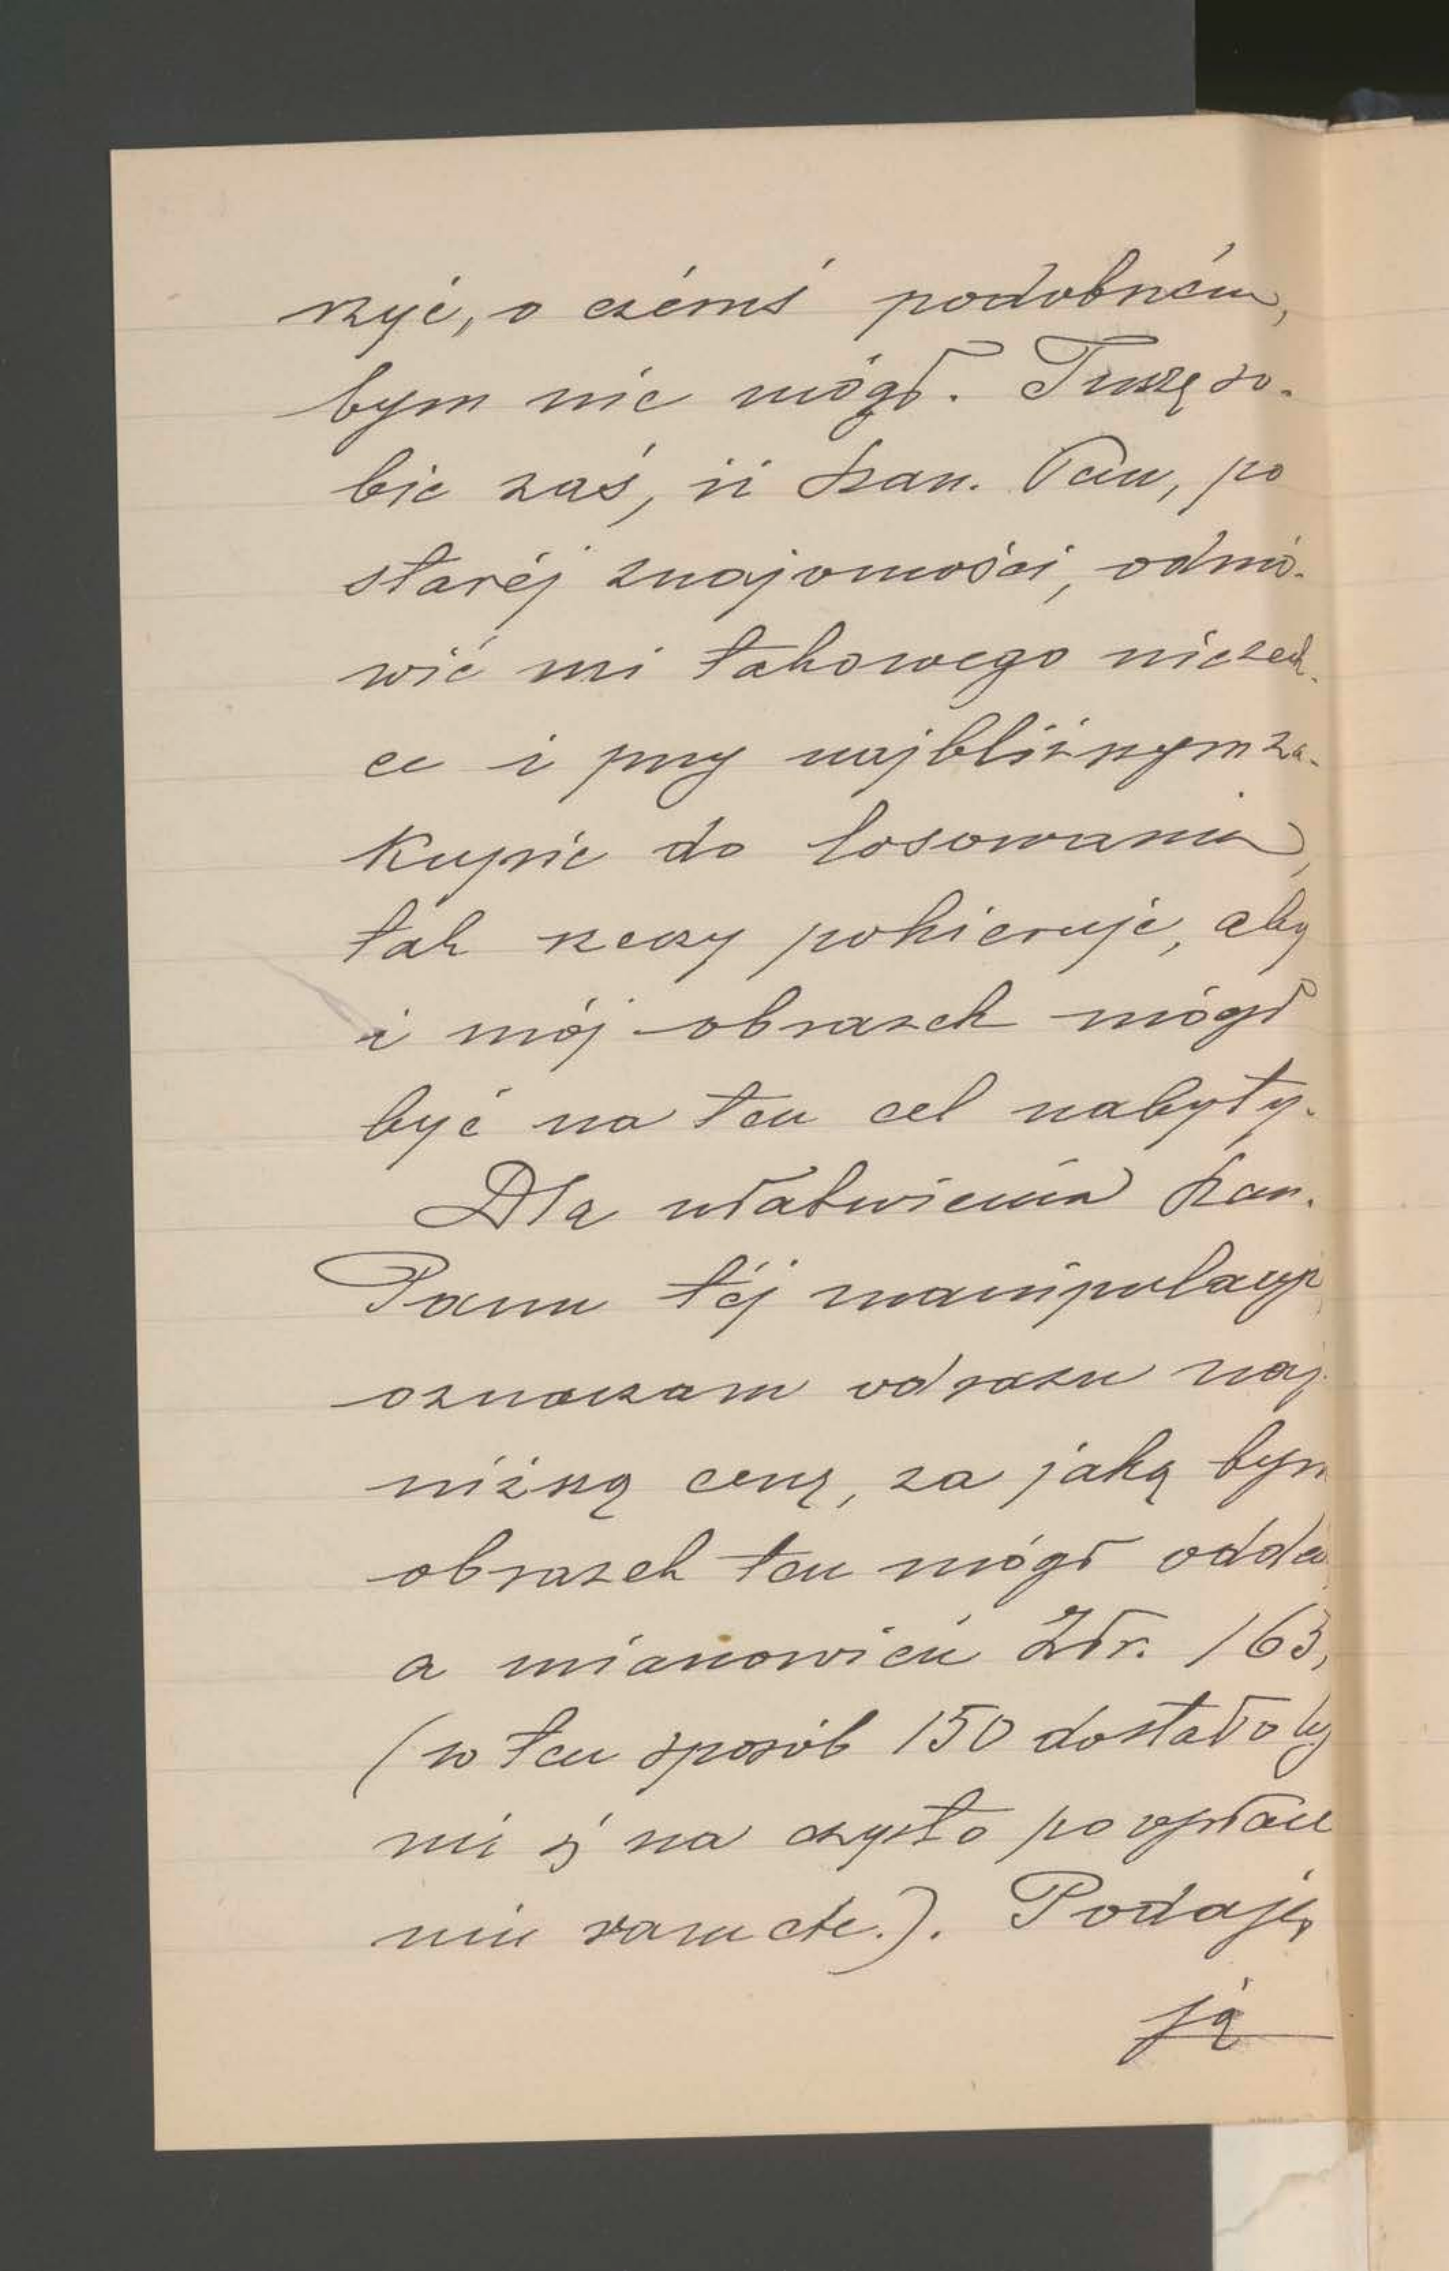 rzyć, o czémś podobném,
bym nie mógł. Tuszę so-
bie zaś, iż Szan. Pan, po
staréj znajomości, odmó-
wić mi takowego niezech-
ce i przy najbliższym za-
kupie do losowania,
tak rzeczy pokieruje, aby
i mój obrazek mógł
być na ten cel nabyty.
Dla ułatwienia Szan.
Panu téj manipulacyi,
oznaczam odrazu naj-
niższą cenę, za jaką bym
obrazek ten mógł oddać
a mianowicie Złr. 163,
(w ten sposób 150 dostałoby
mi się na czysto po opłace
niu ramu etc.). Podaję
ją